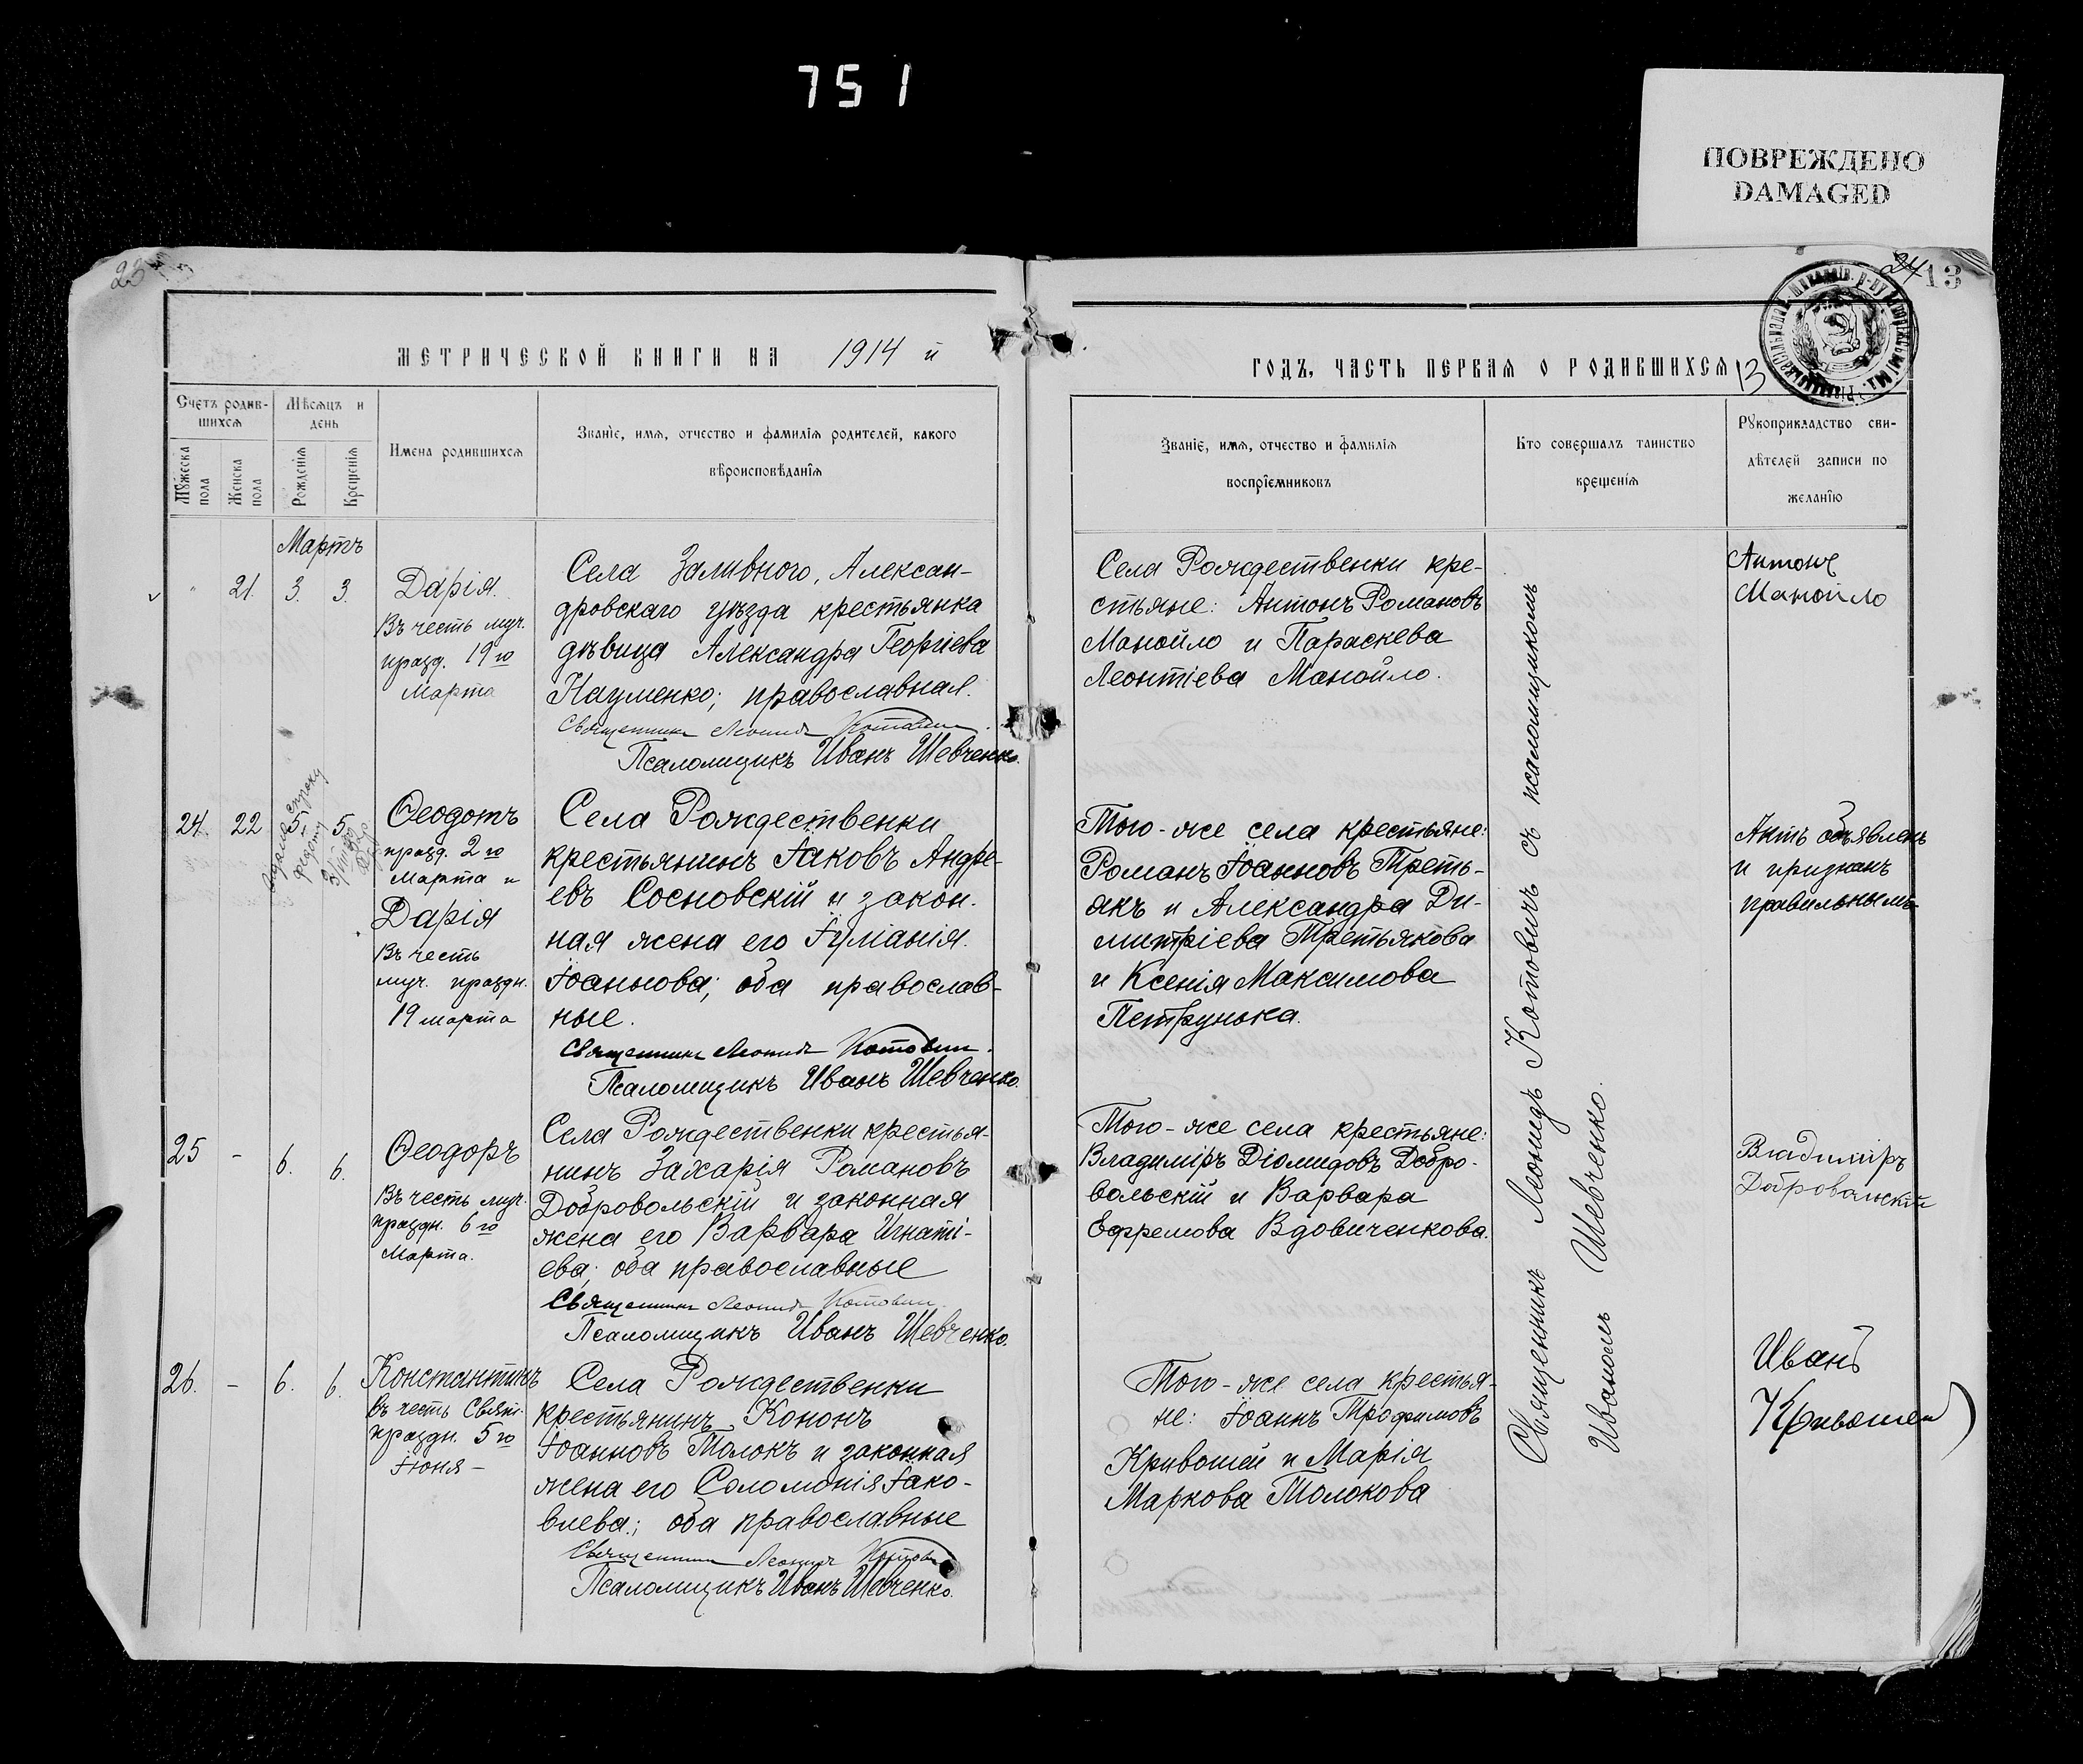 751
ПОВРЕЖДЕНО
DAMAGED
23
24
13
МЕТРИЧЕСКОЙ КНИГИ НА 1914 й
ГОДЪ, ЧАСТЬ ПЕРВАЯ О РОДИВШИХСЯ
13
Счетъ родив-
шихся
Мѣсяцъ и
день
Мужеска
пола
Женска
пола
Рожденія
Крещенія
Имена родившихся
Званіе, имя, отчество и фамилія родителей, какого
вѣроисповѣданія
Званіе, имя, отчество и фамилія
воспріемниковъ
Кто совершалъ таинство
крещенія
Рукоприкладство сви-
дѣтелей записи по
желанію
Мартъ
21. 3. 3.
Дарія.
Въ честь муч.
празд. 19го
Марта
Села Заливного, Алексан-
дровскаго уѣзда крестьянка
дѣвица Александра Георгіева
Науменко; православная.
Священникъ Леонидъ Котовичъ.
Псаломщикъ Иванъ Шевченко.
Села Рождественки кре-
стьяне: Антонъ Романовъ
Манойло и Параскева
Леонтіева Манойло.
Антонъ
Манойло
24. 22 5. 5.
Ѳеодотъ
празд. 2го
Марта и
Дарія
Въ честь
муч. праздн.
19 марта
Села Рождественки
крестьянинъ Іаковъ Андре-
евъ Сосновскій и закон.
ная жена его Іуліанія
Іоаннова; оба православ-
ные.
Священникъ Леонидъ Котовичъ.
Псаломщикъ Иванъ Шевченко.
Того-же села крестьяне:
Романъ Іоанновъ Треть-
якъ и Александра Ди-
митріева Третьякова
и Ксенія Максимова
Петрунька.
Актъ объявленъ
и признанъ
правильнымъ
25 - 6. 6.
Ѳеодоръ
Въ честь муч.
праздн. 6го
Марта.
Села Рождественки крестья-
нинъ Захарія Романовъ
Добровольскій и законная
жена его Варвара Игнаті-
ева; оба православные
Священникъ Леонидъ Котовичъ.
Псаломщикъ Иванъ Шевченко.
Того-же села крестьяне:
Владиміръ Діомидовъ Добро-
вольскій и Варвара
Ефремова Вдовиченкова.
Владиміръ
Добровольскій
26. - 6. 6.
Константинъ
въ честь Святі.
праздн. 5го
Іюня -
Села Рождественки
крестьянинъ Кононъ
Іоанновъ Толокъ и законная
жена его Соломонія Іако-
влева; оба православные
Священникъ Леонидъ Котовичъ
Псаломщикъ Иванъ Шевченко.
Того-же села крестья-
не: Іоаннъ Трофимовъ
Кривошей и Марія
Маркова Толокова
Иванъ
Кривошеи
Священникъ Леонидъ Котовичъ съ псаломщикомъ
Иваномъ Шевченко.